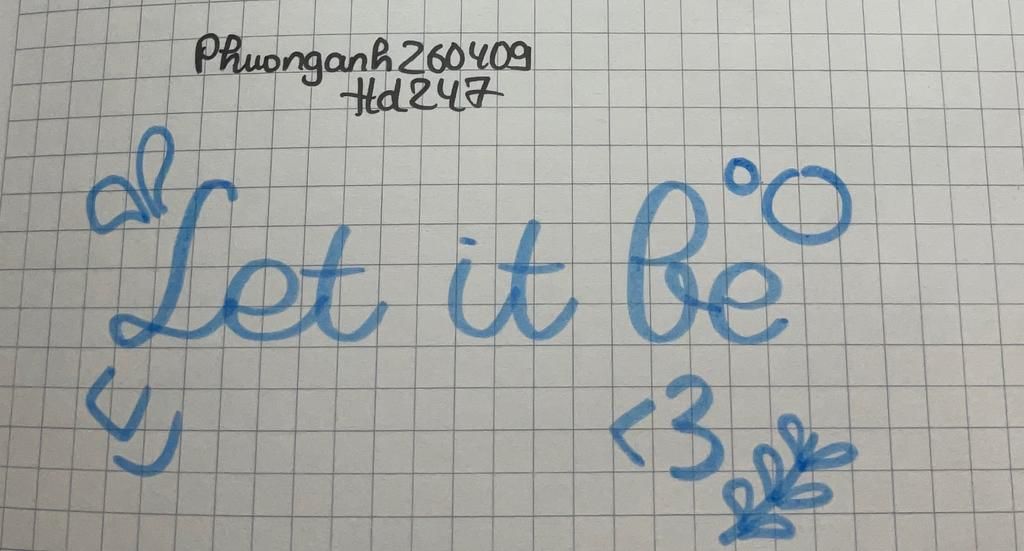 Phuonganh260409
Hd247
Let it be
<3